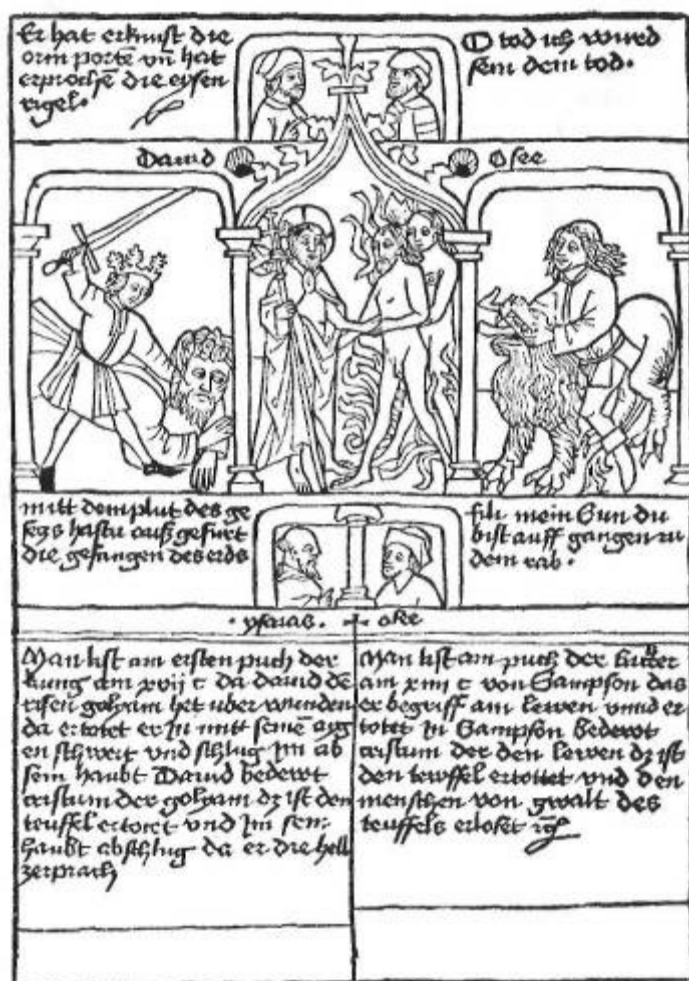 Er hat erknust die
erin porte vñ hat
erproche die eysen
rigel.
O tod ich wurd
sein dein tod.
David
Osee
mitt dem plut des ge
segs hastu auß gefurt
die gefangen des erds
fili mein Sun du
bist auff gangen zu
dem rab.
ysaias
oke
Man list am ersten puch der
kung am xvij c da david dē
risen golyam het uber wunden
da ertotet er in mitt seinē aig
en schwert vnd schlug im ab
sein haubt David bedewt
cristum der golyam dz ist den
teuffel ertotet vnd Im sein
haubt abschlug da er die hell
zerprach
Man list am puch der
am xiiii c von Sampson das
er begriff ain lewen vnnd er
totet in Sampson bedewt
cristum der den lewen dz ist
den tewffel ertottet vnd den
menschen von gwalt des
teuffels erloset